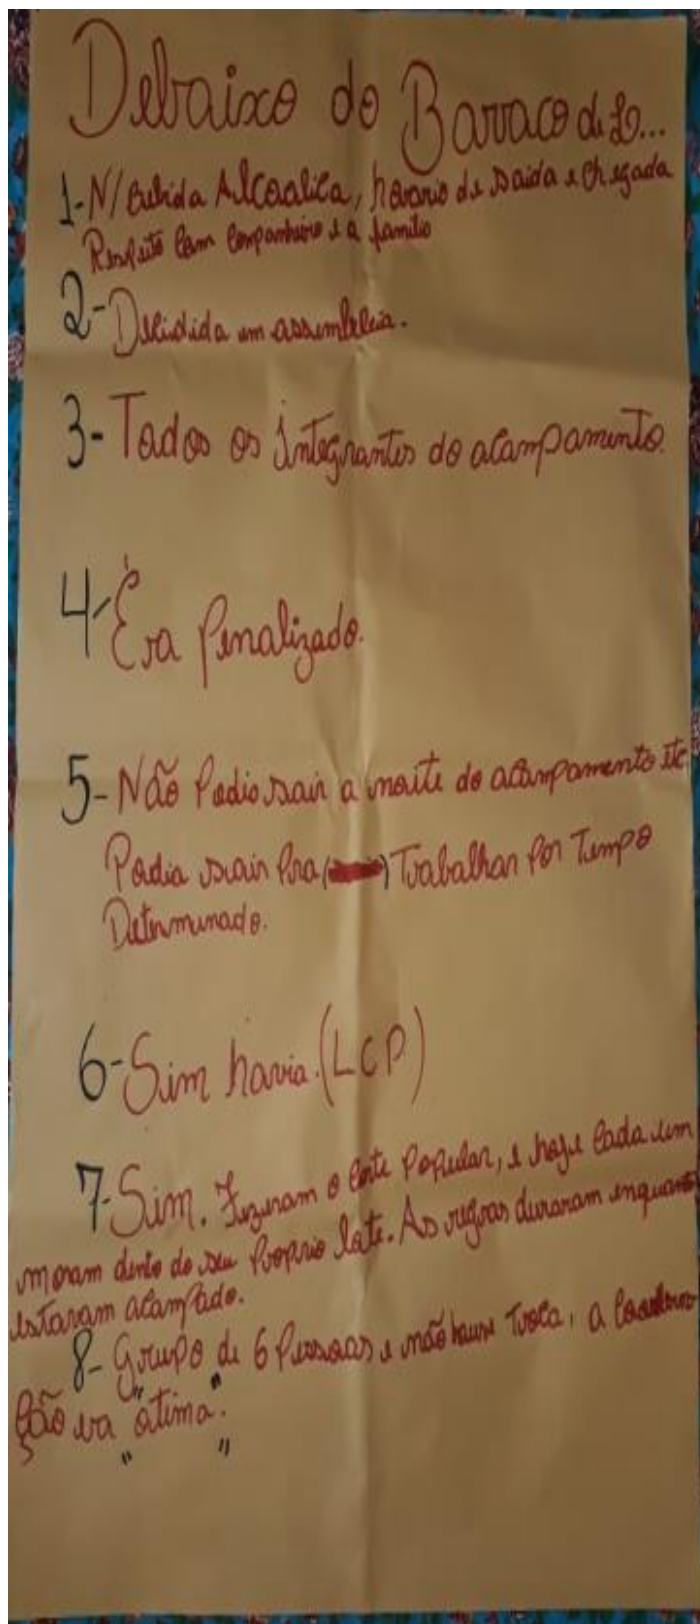 Debaixo do Barraco de Lo...
1- N/ bebida Alcoalica, horario de saida e chegada
Respeito com companheiro e a familia
2- Decidida em assembleia.
3- Todos os Integrantes do acampamento.
4- Era Penalizado.
5- Não Podia sair a noite do acampamento etc
Podia sair Pra ( ) Trabalhar Por Tempo
Determinado.
6- Sim havia. (LCP)
7- Sim. Fizeram o corte Popular, e hoje cada um
moram dento do seu Proprio lote. As regras duraram enquanto
estavam acampado.
8- Grupo de 6 Pessoas e não houve Troca, a Coordena
ção era "otima".
" "